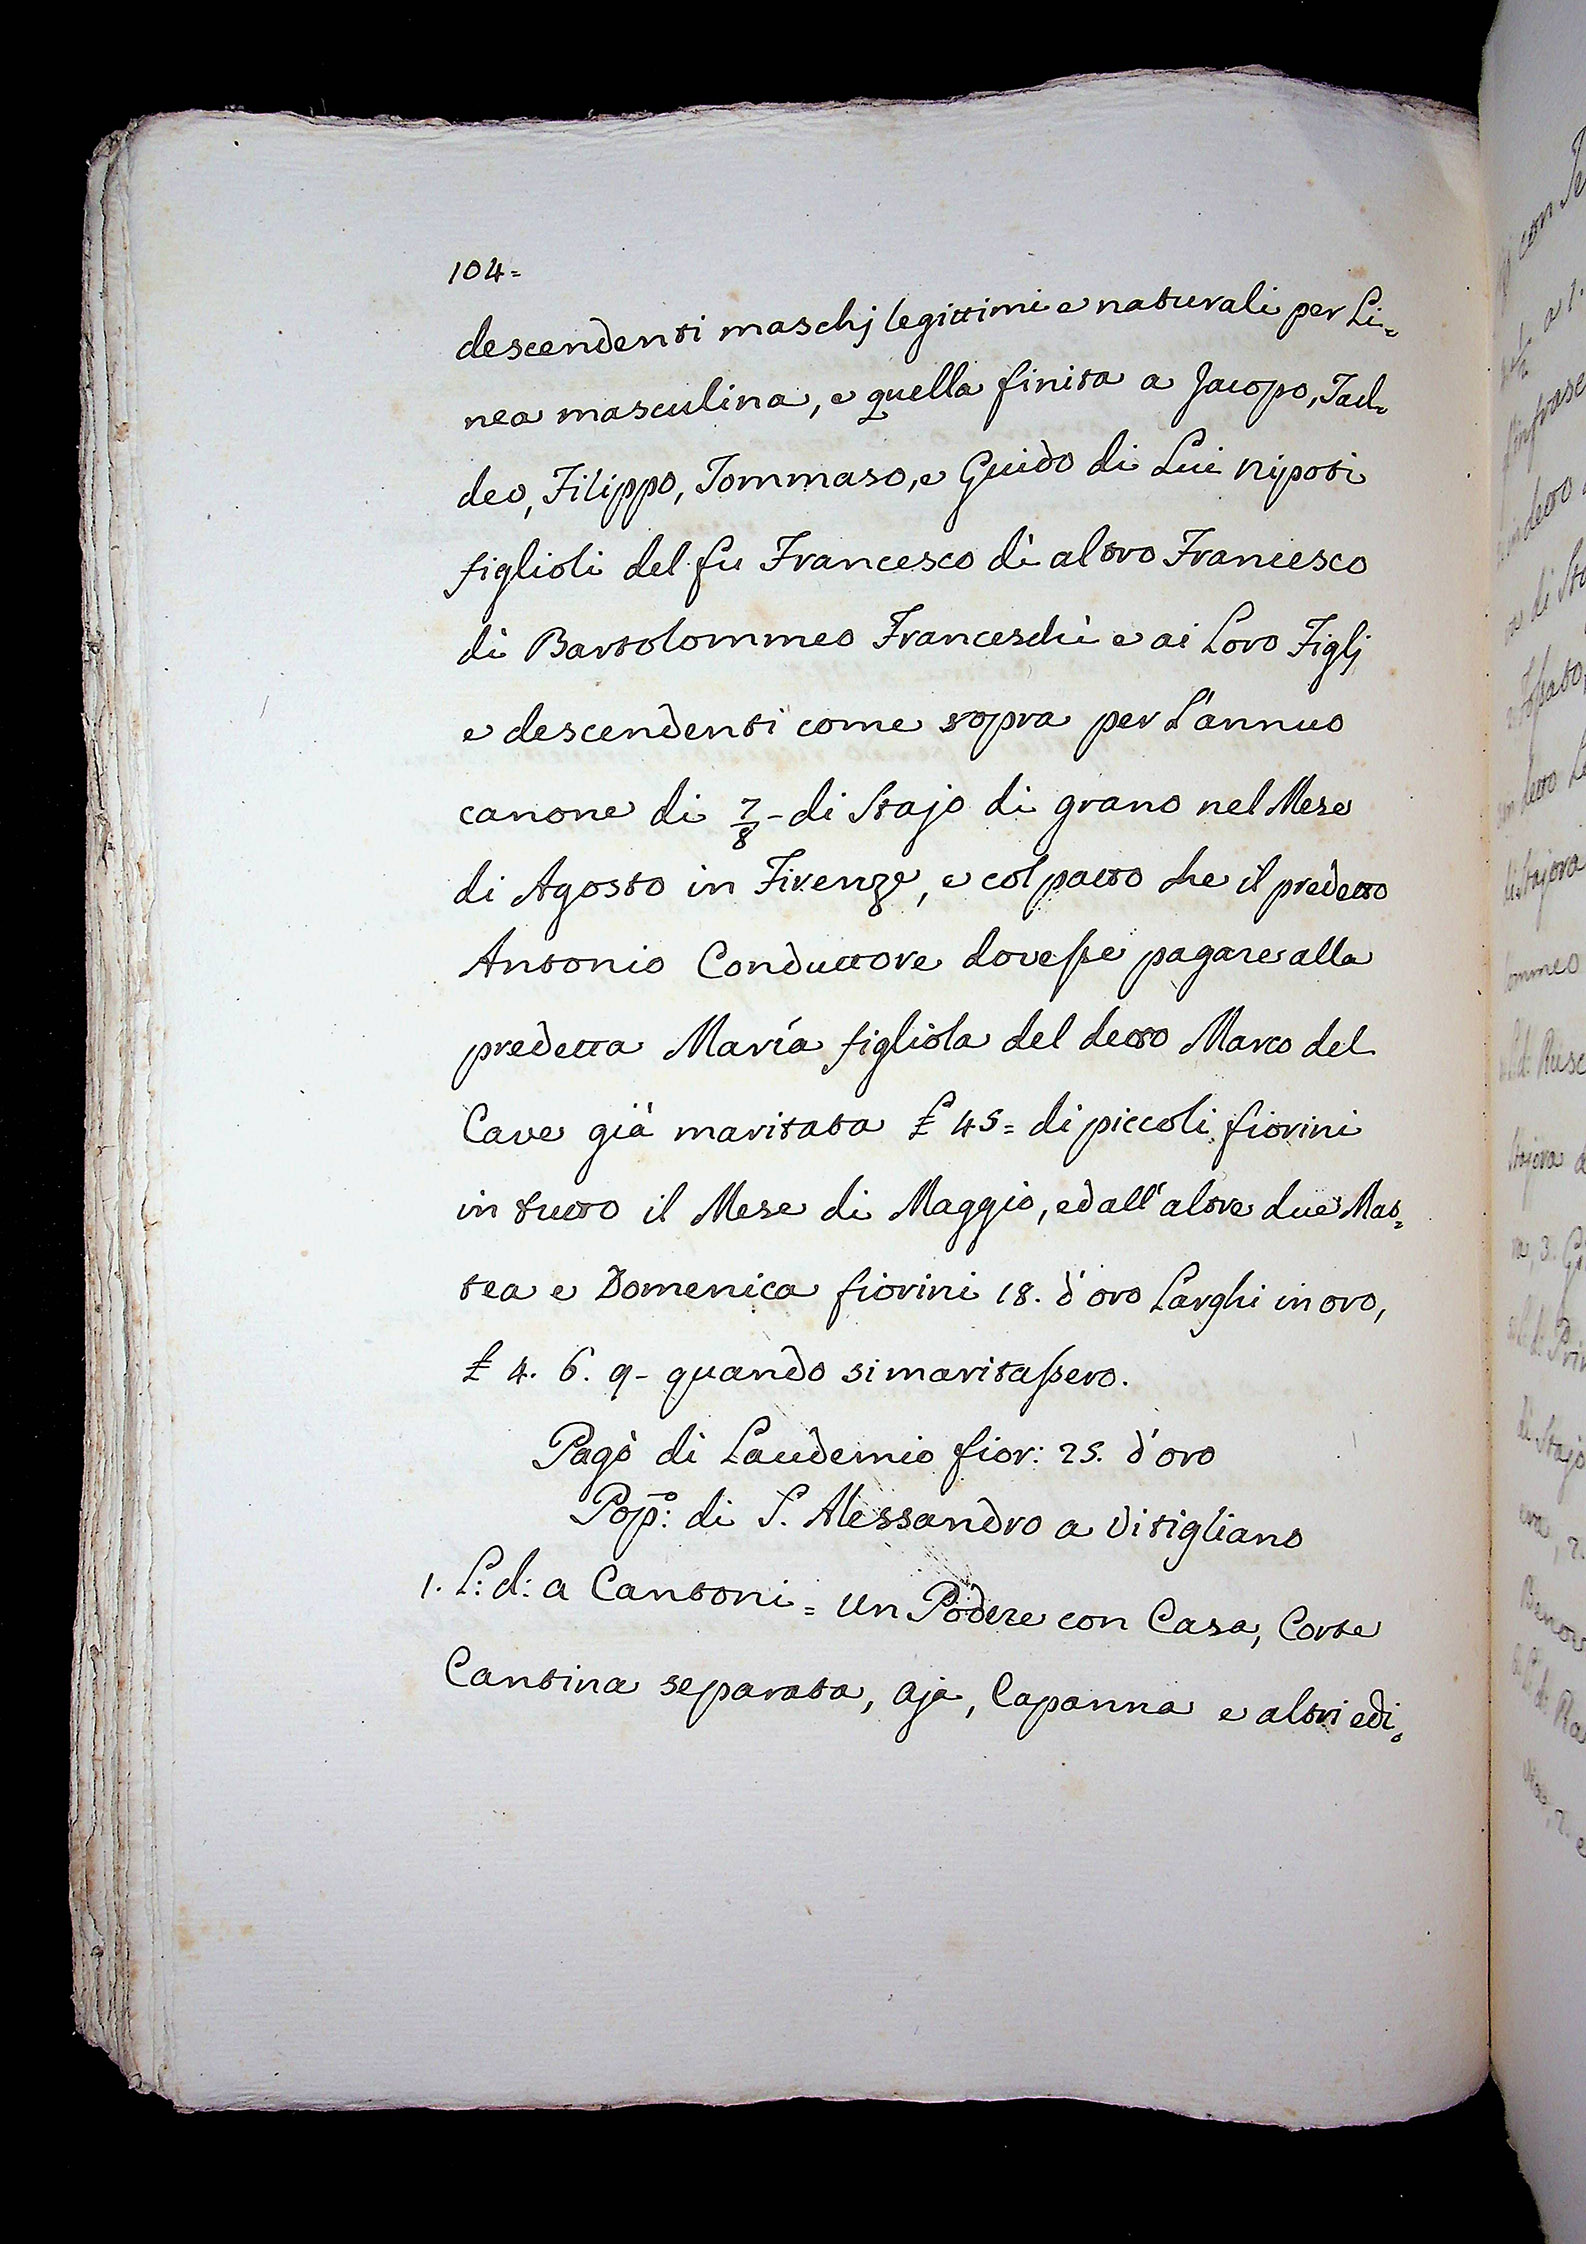 104=
descendenti maschj legittimi e naturali per Li=
nea masculina, e quella finita a Jacopo, Tad=
deo, Filippo, Tommaso, e Guido di Lui nipoti
figlioli del fu Francesco di altro Francesco
di Bartolommeo Franceschi e ai Loro Figlj
e descendenti come sopra per L'annuo
canone di 7/8 - di Stajo di grano nel Mese
di Agosto in Firenze, e col patto che il predetto
Antonio Conduttore dovesse pagare alla
predetta Maria figliola del detto Marco del
Cave già maritata £ 45= di piccoli fiorini
in tutto il Mese di Maggio, ed all'altre due Mat=
tea e Domenica fiorini 18. d'oro Larghi in oro,
£ 4. 6. 9- quando si maritassero.
Pagò di Laudemio fior: 25. d'oro
Popo: di S. Alessandro a Vitigliano
1. L: d: a Cantoni = Un Podere con Casa, Corte
Cantina separata, aja, Capanna e altri edi=